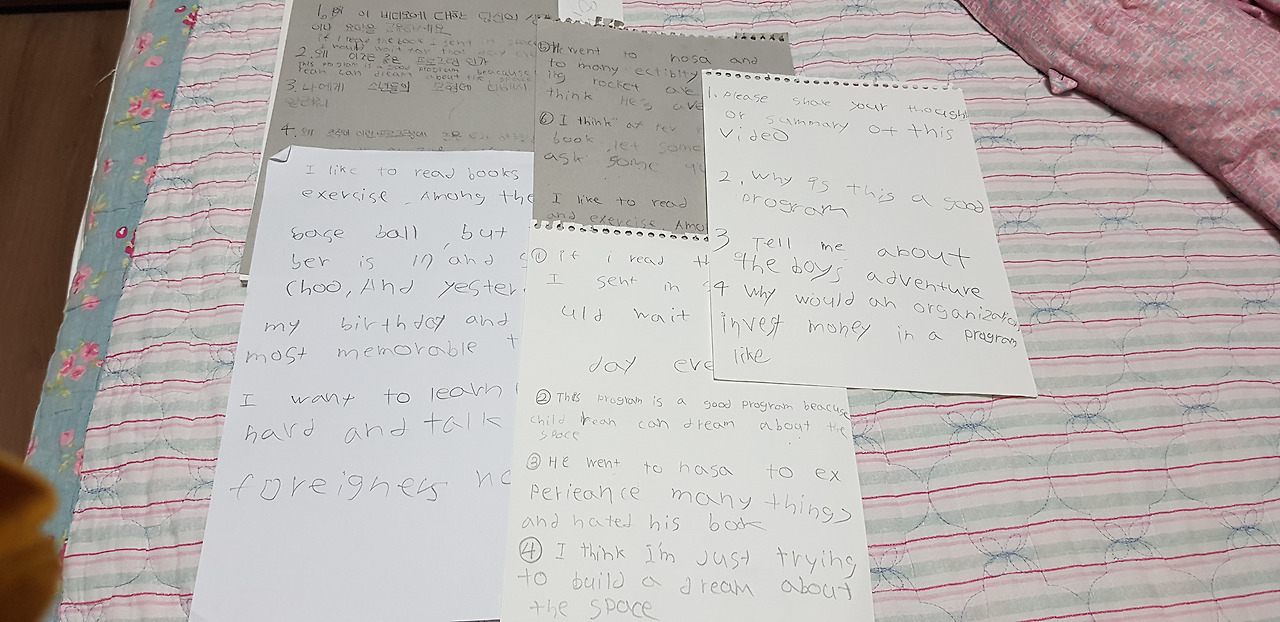 1. 왜 이 비디오에 대한 당신의 생
이나 요약을
if I read the book I sent in space
I would wait for that day
2. 왜 이것은 좋은 프로그램 인가
This program is a good program beacause
can dream about the space
3. 나에게 소년들의 모험에
4. 왜
⑤He went to nasa and
to many ectibity
ing rocket are
think He's ave
⑥ I think at fev
book let some
ask some
I like to read
and exercise Amo
1. Please share your though
or summary of this
video
2. Why is this a good
program
3 Tell me about
the boys adventure
4 Why would an organizatio
invest money in a program
like
I like to read books
exercise. Among the
base ball, but
ber is 17 and
Choo, And yester
my birthday and
most memorable t
I want to learn
hard and talk
foreigners
① if i read th
I sent in
uld wait
day eve
② This program is a good program beacause
child rean can dream about the
space
③ He went to nasa to ex
perieance many things
and hated his book
④ I think I'm Just trying
to build a dream about
the space